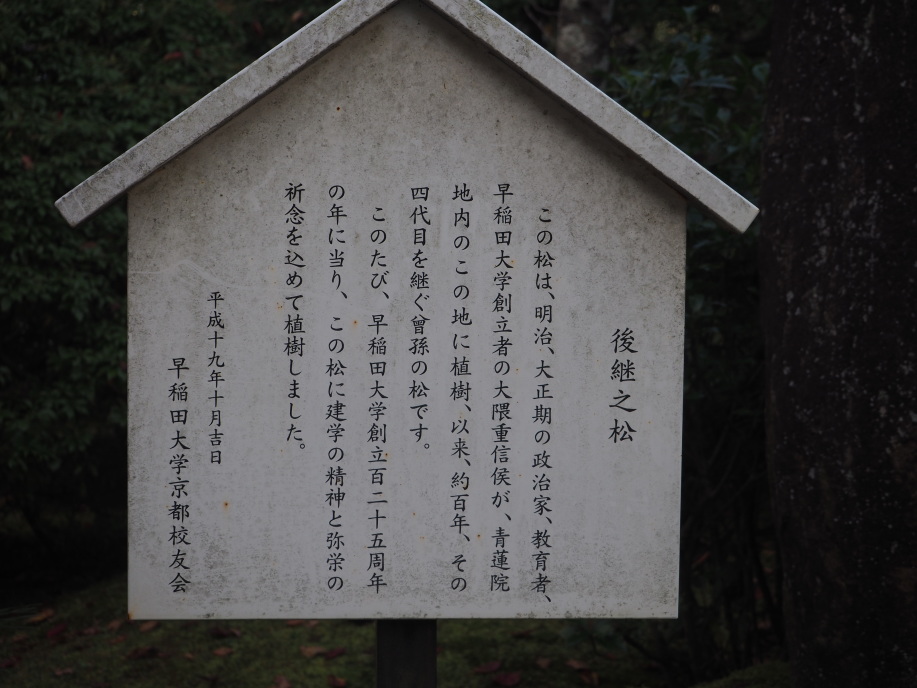 後継之松
この松は、明治、大正期の政治家、教育者、
早稲田大学創立者の大隈重信侯が、青蓮院
地内のこの地に植樹、以来、約百年、その
四代目を継ぐ曾孫の松です。
このたび、早稲田大学創立百二十五周年
の年に当り、この松に建学の精神と弥栄の
祈念を込めて植樹しました。
平成十九年十月吉日
早稲田大学京都校友会